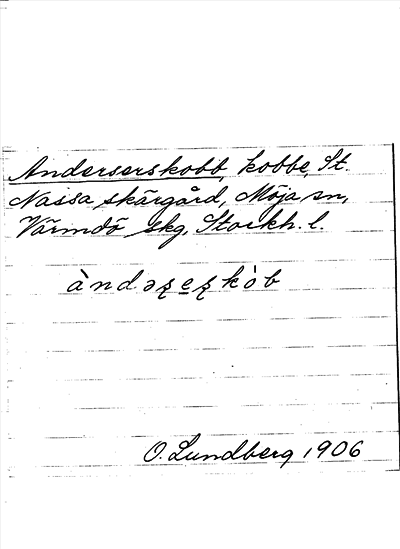 Anderserskobb, kobbe, St.
Nassa skärgård, Möja sn,
Värmdö skg, Stockh. l.
àndəʂeʂkòb
O. Lundberg 1906